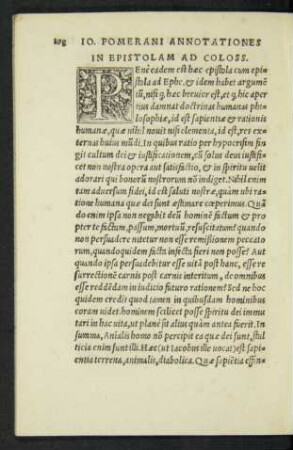 108 IO. POMERANI ANNOTATIONES
IN EPISTOLAM AD COLOSS.
PEne eadem est hæc epistola cum epi-
stola ad Ephe. & idem habet argumē
tū, nisi q̃ hæc breuior est, et q̃ hic aper
tius damnat doctrinas humanas phi
losophiæ, id est sapientiæ & rationis
humanæ, quæ nihil nouit nisi elementa, id est, res ex-
ternas huius mūdi. In quibus ratio per hypocrisim fin-
git cultum dei & iustificationem, cū solus deus iustifi-
cet non nostra opera aut satisfactio, & in spiritu uelit
adorari qui bonorū nostrorum nō indiget. Nihil enim
tam aduersum fidei, id est saluti nostræ, quàm ubi ra-
tione humana quæ dei sunt æstimare cœperimus. Quā
do enim ipsa non negabit deū hominē factum & pro-
pter te factum, passum, mortuū, resuscitatum? quando
non persuadere nitetur non esse remissionem peccato
rum, quandoquidem facta infecta fieri non posse? Aut
quando ipsa persuadebitur esse uitā post hanc, esse re
surrectionē carnis post carnis interitum, de omnibus
esse reddēdam in iudicio futuro rationem? Sed ne hoc
quidem credit quod tamen in quibusdam hominibus
coram uidet. hominem scilicet posse spiritu dei immu-
tari in hac uita, ut planè sit alius quàm antea fuerit. In
summa, Anialis homo nō percipit ea quæ dei sunt, stul
ticia enim sunt illi. Hæc (ut Iacobus ille uocat) est sapi-
entia terrena, animalis, diabolica. Quæ sapiētia essen-